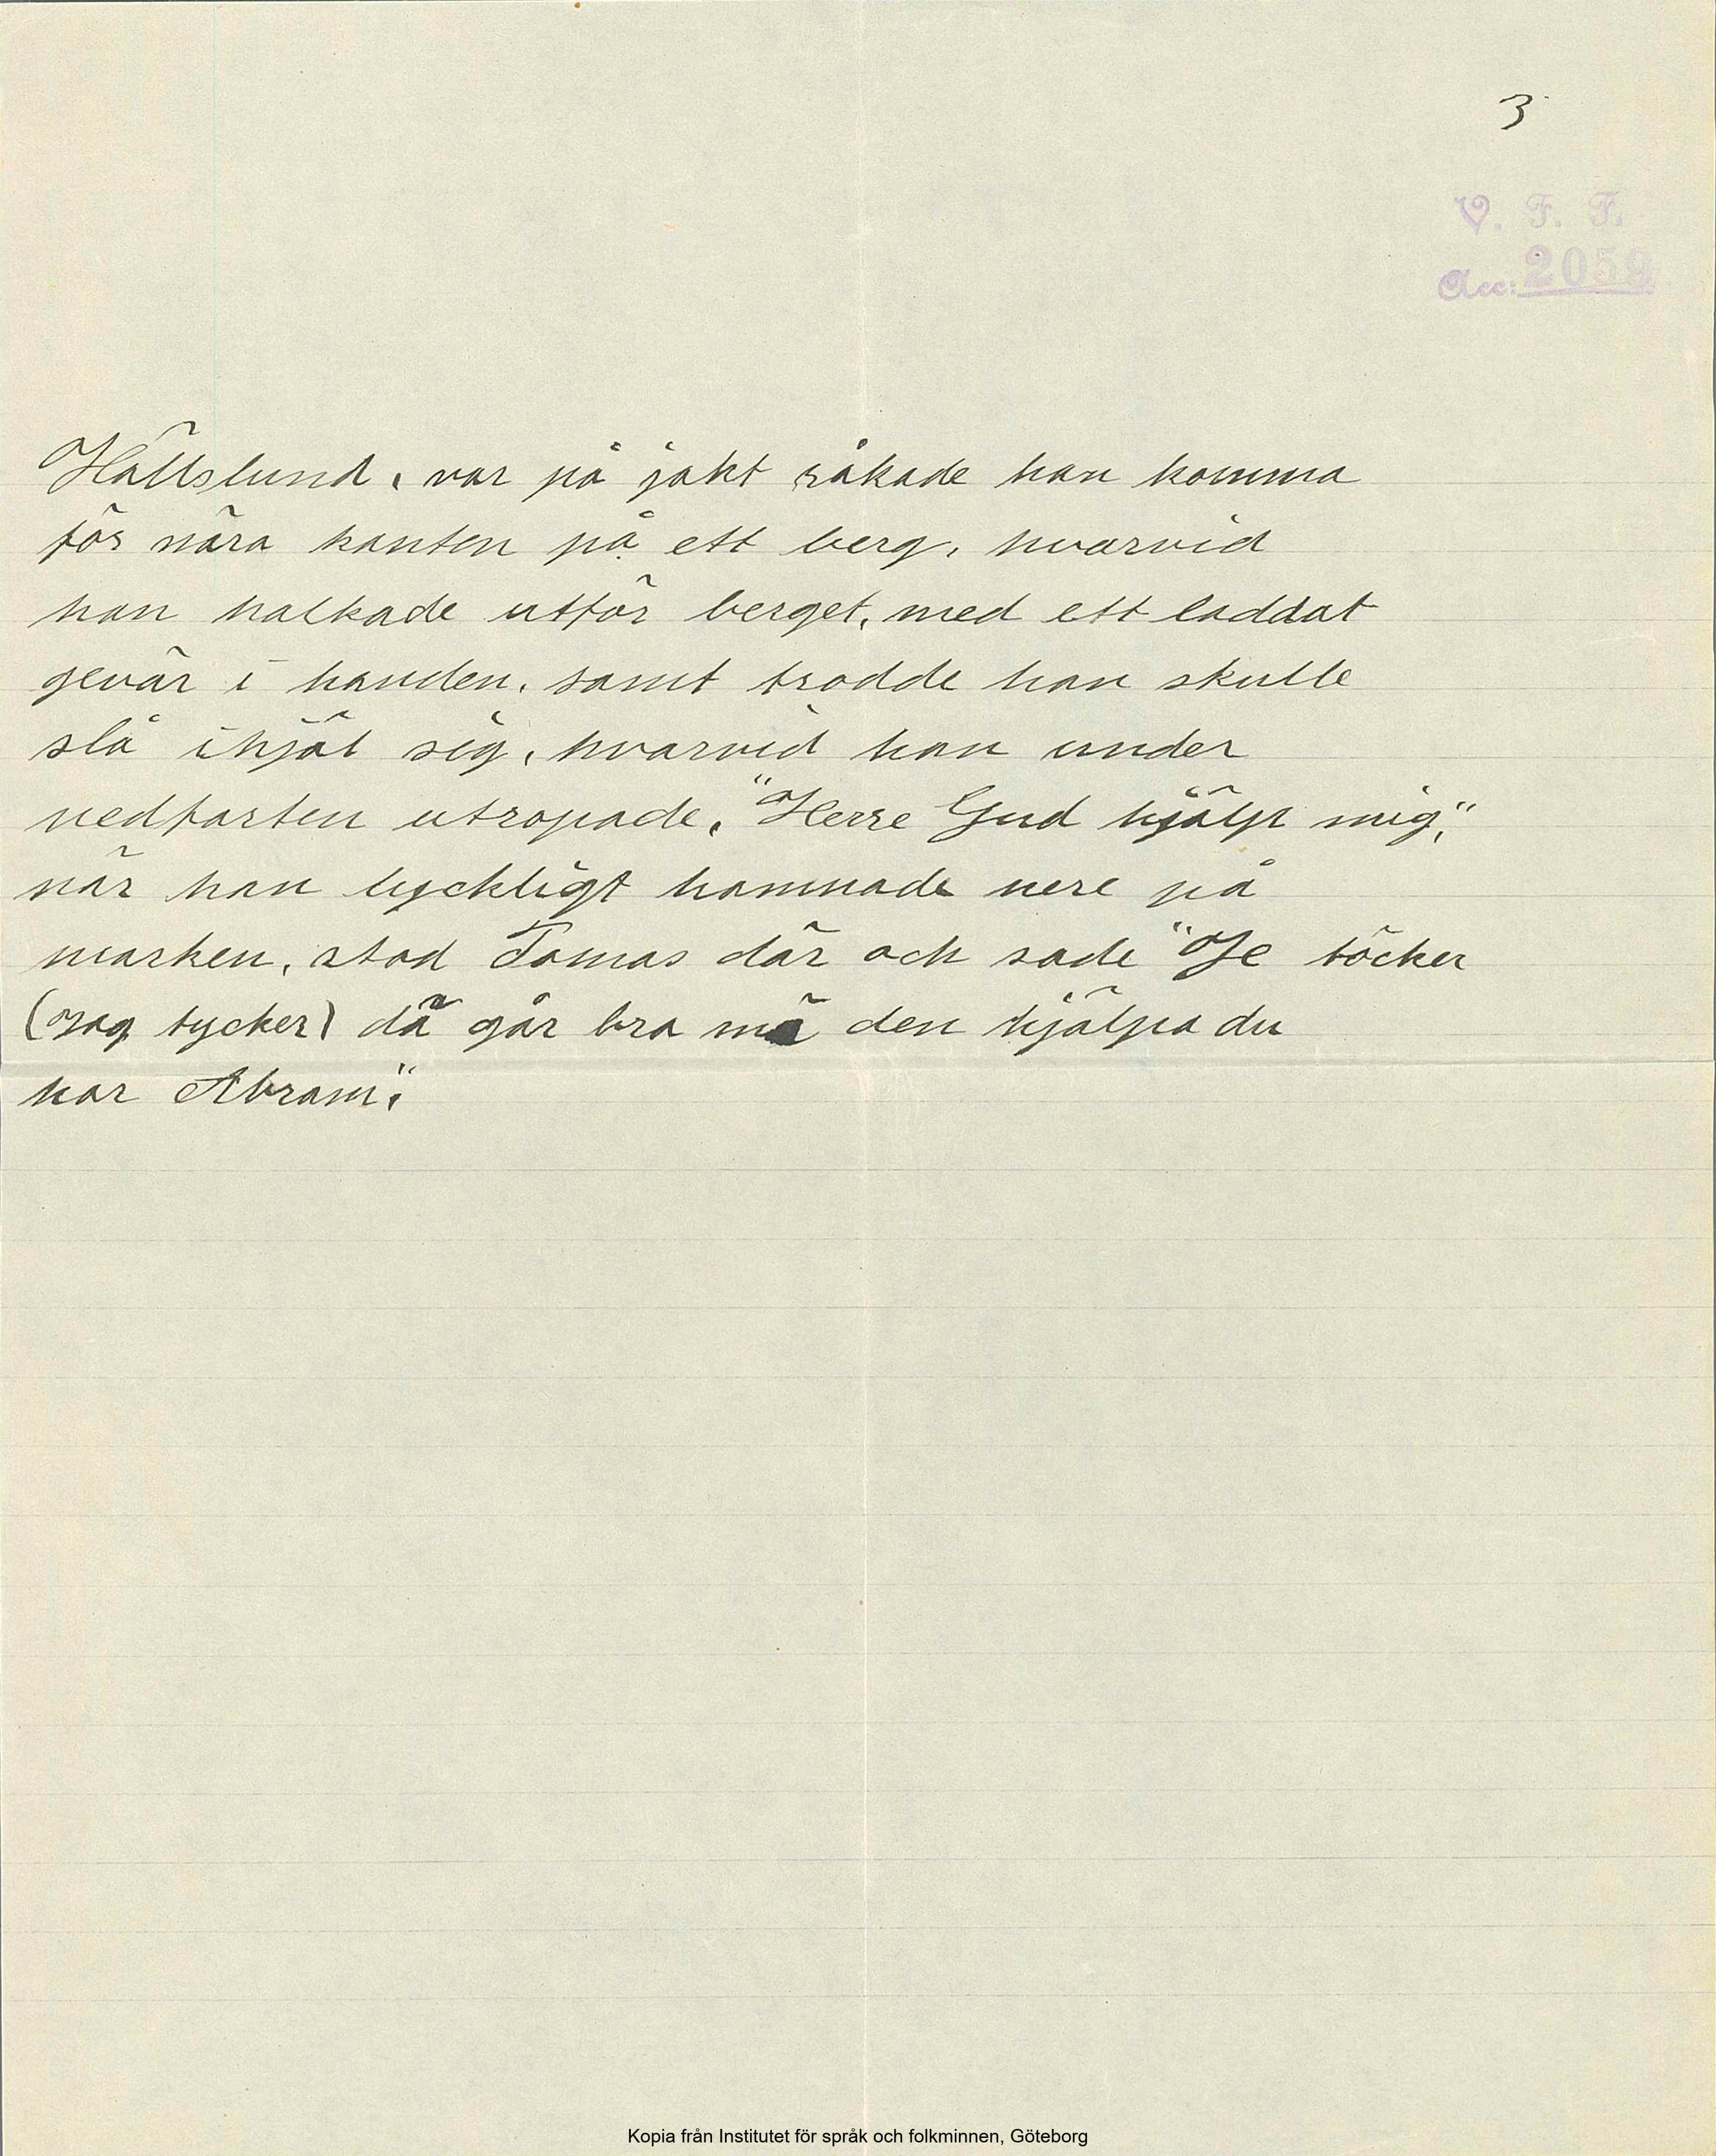 3
V. F. F.
Acc: 2059
Hällslund, var på jakt råkade han komma
för nära kanten på ett berg, hvarvid
han halkade utför berget, med ett laddat
gevär i handen, samt trodde han skulle
slå ihjäl sig, hvarvid han under
nedfarten utropade, "Herre Gud hjälp mig,"
när han lyckligt hamnade nere på
marken, stod Tomas där och sade "Je töcker
(jag tycker) dä går bra mä den hjälpa du
har Abram".
Kopia från Institutet för språk och folkminnen, Göteborg